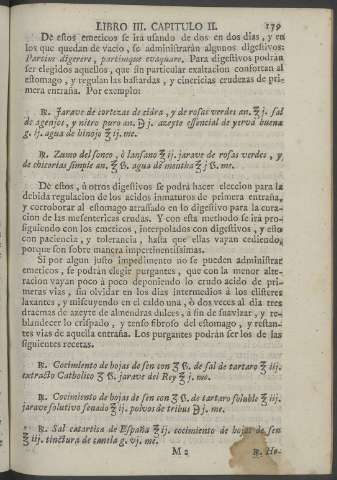 LIBRO III. CAPITULO II. 179
De estos emeticos se irà usando de dos en dos dias, y en
los que quedan de vacio, se administraràn algunos digestivos:
Partim digerere, partimque evaquare. Para digestivos podràn
ser elegidos aquellos, que sin particular exaltacion confortan al
estomago, y regulan las bastardas, y cinericias crudezas de pri-
mera entraña. Por exemplo:
℞. Jarave de cortezas de cidra, y de rosas verdes an. ℥j. sal
de agenjos, y nitro puro an. ℈j. azeyte essencial de yerva buena
g. ij. agua de hinojo ℥ij. me.
℞. Zumo del sonco, ò lansano ℥ij. jarave de rosas verdes, y
de chicorias simple an. ℥ß. agua de mentha ℥j ß. me.
De estos, ù otros digestivos se podrà hacer eleccion para la
debida regulacion de los acidos inmaturos de primera entraña,
y corroborar al estomago atrassado en lo digestivo para la cura-
cion de las mesentericas crudas. Y con esta methodo se irà pro-
siguiendo con los emeticos, interpolados con digestivos, y esto
con paciencia, y tolerancia, hasta que ellas vayan cediendo,
porque son sobre manera impertinentissimas.
Si por algun justo impedimento no se pueden administrar
emeticos, se podràn elegir purgantes, que con la menor alte-
racion vayan poco à poco deponiendo lo crudo acido de pri-
meras vias, sin olvidar en los dias intermedios à los clisteres
laxantes, y miscuyendo en el caldo una, ò dos veces al dia tres
dracmas de azeyte de almendras dulces, à fin de suavizar, y re-
blandecer lo crispado, y tenso fibroso del estomago, y restan-
tes vias de aquella entraña. Los purgantes podràn ser los de las
siguientes recetas.
℞. Cocimiento de hojas de sen con ʒß. de sal de tartaro ℥iij.
extracto Catholico ʒß. jarave del Rey ℥j. me.
℞. Cocimiento de hojas de sen con ʒß. de tartaro soluble ℥iij.
jarave solutivo senado ℥ij. polvos de tribus ℈j. me.
℞. Sal catartica de España ℥ij. cocimiento de hojas de sen
℥iij. tinctura de canela g. vj. me.
M 2 ℞. Ho-